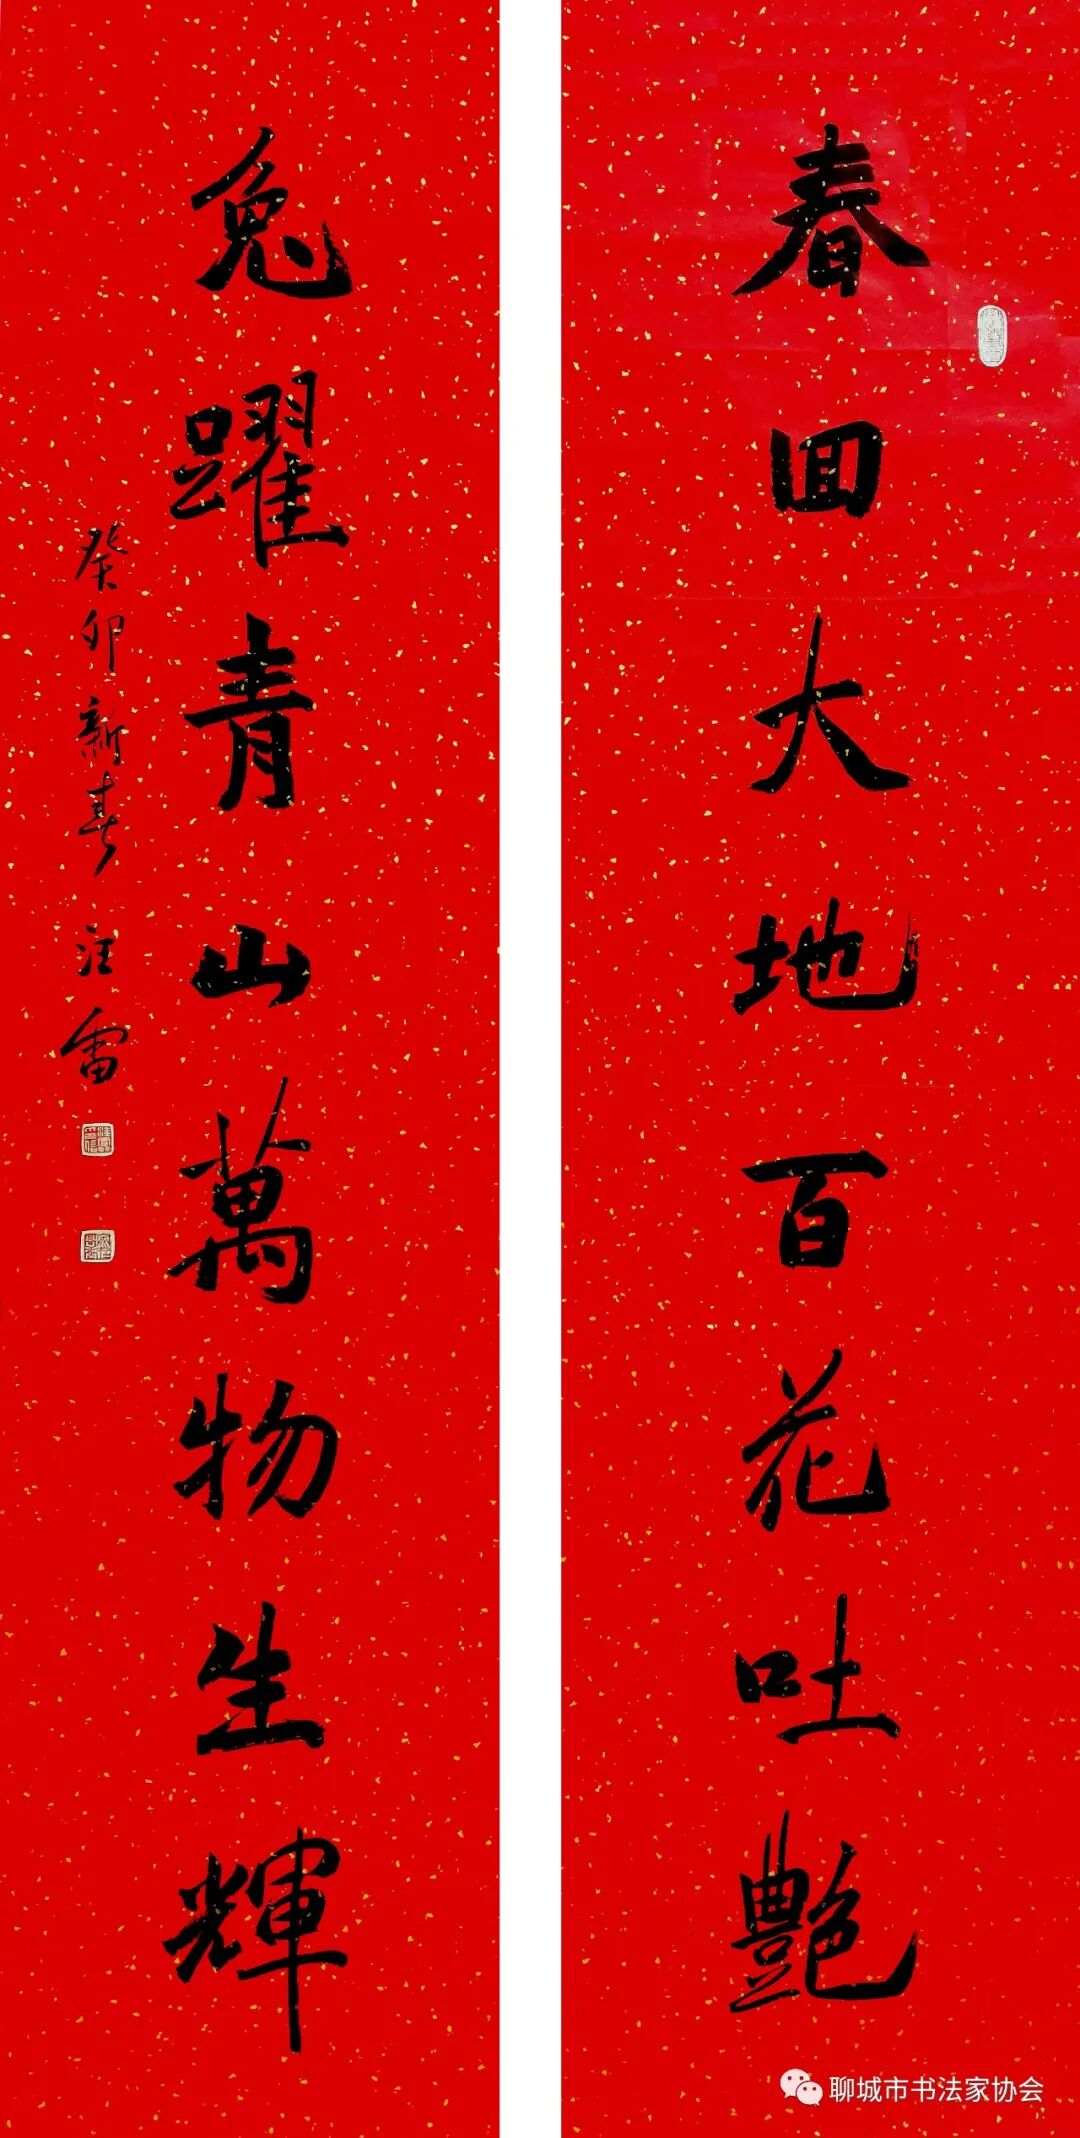 春回大地百花吐艷
兔躍青山萬物生輝
癸卯新春 汪雷
聊城市书法家协会